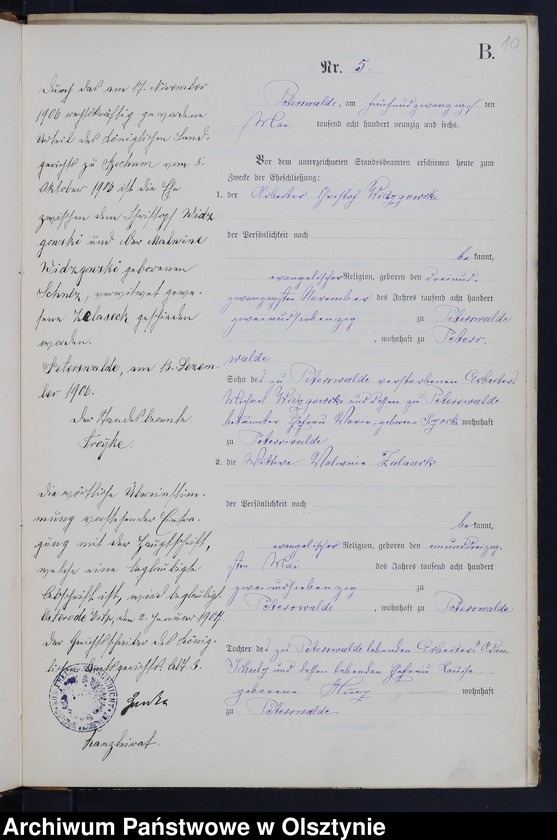 B.
10
Nr. 5.
Peterswalde, am fünfundzwanzig ten
Mai tausend acht hundert neunzig und sechs.
Vor dem unterzeichneten Standesbeamten erschienen heute zum
Zwecke der Eheschließung:
1. der Arbeiter Christof Widzgowski
der Persönlichkeit nach
be kannt,
evangelischer Religion, geboren den dreiund-
zwanzigsten November des Jahres tausend acht hundert
zweiundsiebenzig zu Peterswalde
, wohnhaft zu Peters-
walde
Sohn des zu Peterswalde verstorbenen Arbeiters
Michael Widzgowski und dessen zu Peterswalde
Ehefrau Marie, geborene wohnhaft
zu Peterswalde
2. die Wittwe Malwine
der Persönlichkeit nach
be kannt,
evangelischer Religion, geboren den einunddreizig-
sten Mai des Jahres tausend acht hundert
zweiundsiebenzig zu
Peterswalde, wohnhaft zu Peterswalde
Tochter des zu Peterswalde lebenden Arbeiters Adam
Schulz und dessen lebenden Ehefrau Louise
geborene wohnhaft
zu Peterswalde
Durch das am 17. November
1906 rechtskräftig gewordene
Urteil des Königlichen Land-
gerichts zu Bochum vom 5.
Oktober 1906 ist die Ehe
zwischen dem Christoph Widz
gowski und der Malwine
Widzgowski geborenen
Schulz, verwitwet gewe-
sene Zelaseck geschieden
worden.
Peterswalde, am 13. Dezem-
ber 1906.
Der Standesbeamte
Die wörtliche Übereinstim-
mung vorstehender Eintra-
gung mit der Hauptschrift,
welche eine beglaubigte
Abschrift ist, wird beglaubigt.
Osterode Ostpr., den 2. Januar 1907.
Der Gerichtsschreiber des König-
lichen Amtsgerichts Abt. 3.
Kanzleirat.
Archiwum Państwowe w Olsztynie